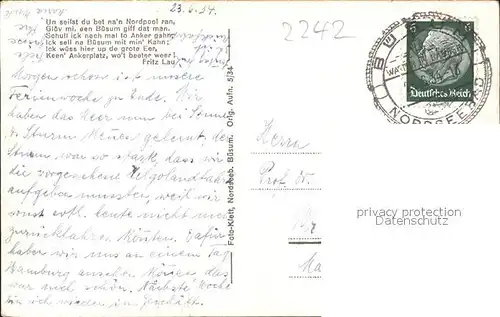 23.6.34
2242
Un seilst du bet na'n Nordpool ran,
Glöv mi, een Büsum giff dat man.
Schull ick noch mal to Anker gahn,
Ick seil na Büsum mit min' Kahn;
Ick wüss hier up de grote Eer,
Keen' Ankerplatz, wo't beeter weer!
Fritz Lau
Morgen schon ist unsere
Ferienwoche zu Ende. Wir
haben das Meer nun bei Sonne
u. Sturm kennen gelernt, der
Sturm war so stark, dass wir
die vorgesehene Helgolandfahrt
aufgeben mussten, weil wir
sonst evtl. heute nicht mehr
zurückfahren könnten. Dafür
haben wir uns an einem Tag
Hamburg ansehen können, das
war auch schön. Nächste Woche
bin ich wieder im Geschäft.
Foto-Klett, Nordseeb. Büsum. Orig. Aufn. 5/34
Herrn
Prof. Dr.
Ma
BÜ
NORDSEEBAD
6
Deutsches Reich
privacy protection
Datenschutz